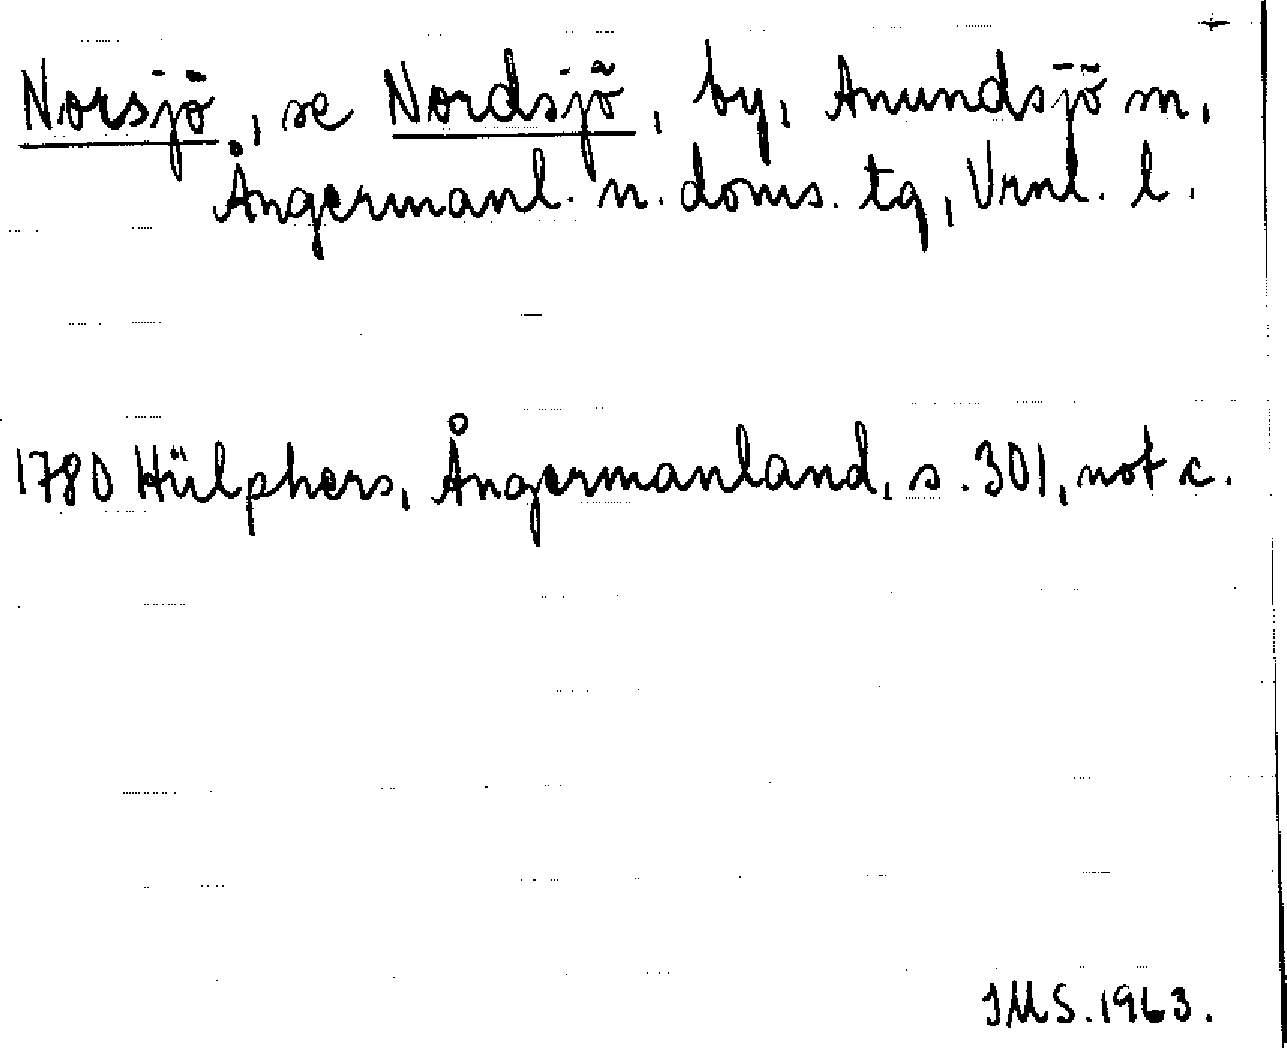 Norsjö, se Nordsjö, by, Anundsjö sn,
Ångermanl. n. doms. tg, Vrnl. l.
1780 Hülphers, Ångermanland, s. 301, not c.
JMS. 1963.